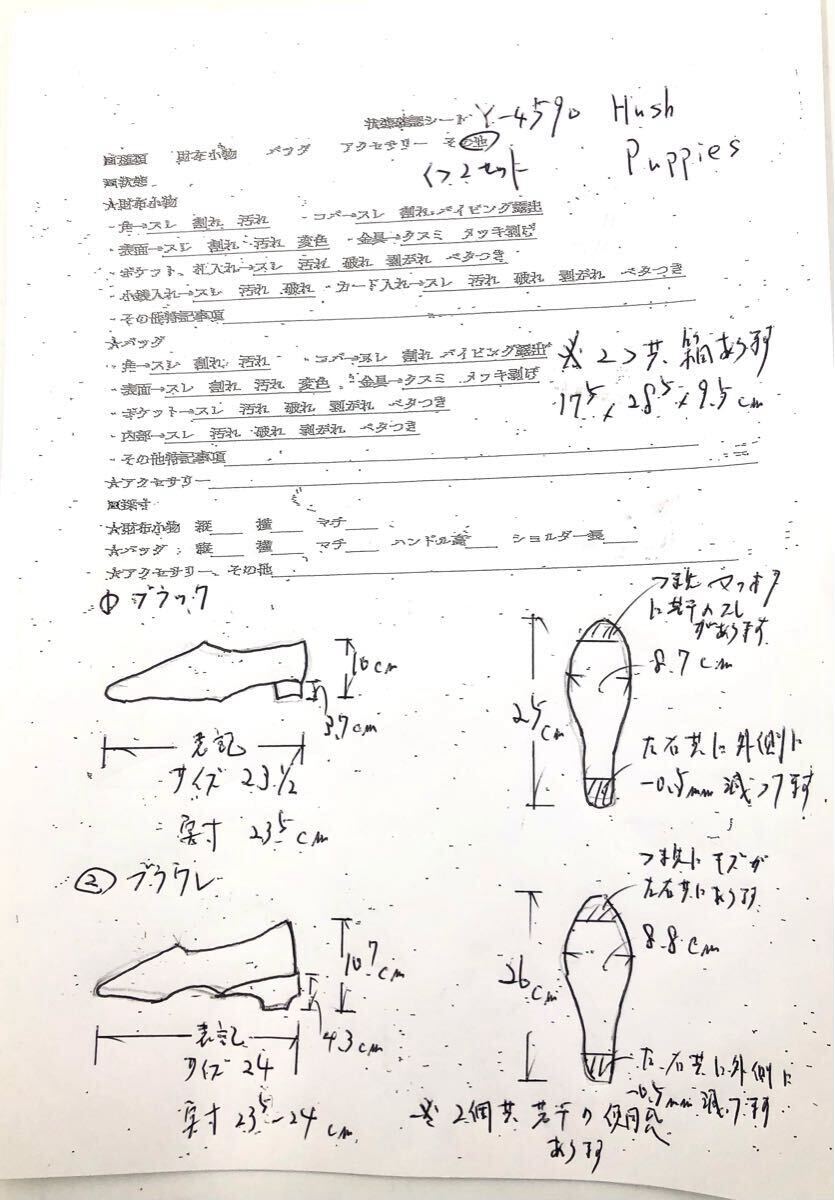 状態確認シート Y-4590 Hush Puppies
■種類 財布小物 バッグ アクセサリー その他
くつ2セット
■状態
★財布小物
・角→スレ 割れ 汚れ ・コバ→スレ 割れ パイピング露出
・表面→スレ 割れ 汚れ 変色 ・金具→クスミ メッキ剥げ
・ポケット、札入れ→スレ 汚れ 破れ 剥がれ ベタつき
・小銭入れ→スレ 汚れ 破れ ・カード入れ→スレ 汚れ 破れ 剥がれ ベタつき
・その他特記事項
★バッグ
・角→スレ 割れ 汚れ ・コバ→スレ 割れ パイピング露出
・表面→スレ 割れ 汚れ 変色 ・金具→クスミ メッキ剥げ
・ポケット→スレ 汚れ 破れ 剥がれ ベタつき
・内部→スレ 汚れ 破れ 剥がれ ベタつき
・その他特記事項
★アクセサリー
※2つ共箱あります
17.5×28.5×9.5cm
■採寸
★財布小物 縦 横 マチ
★バッグ 縦 横 マチ ハンドル高 ショルダー長
★アクセサリー、その他
①ブラック
10cm
3.7cm
表記
サイズ 23 1/2
実寸 23.5cm
つま先
に若干のスレ
があります
25cm
8.7cm
左右共に外側に
-0.5mm減ってます
②ブラウン
10.7cm
4.3cm
表記
サイズ 24
実寸 23.5-24cm
つま先にキズが
左右共にあります
26cm
8.8cm
左右共に外側に
-0.5mm減ってます
※2個共若干の使用感
あります